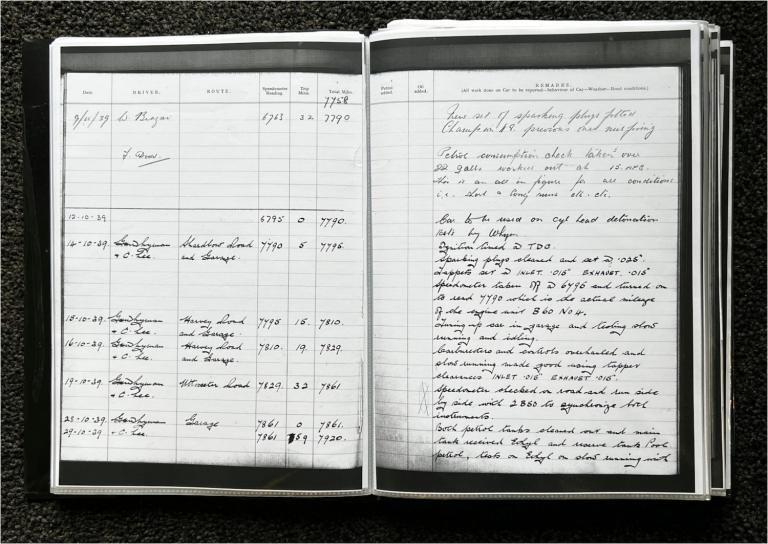 Date. DRIVER. ROUTE. Speedometer Reading. Trip Miles. Total Miles.
7758
9/11/39 W. Bragar 6763 32 7790
12-10-39. 6795 0 7790.
14-10-39. Road 7790 5 7795.
& C. Lee. and Garage.
15-10-39. Harvey Road 7795 15. 7810.
& C. Lee. and Garage.
16-10-39. Harvey Road 7810. 19. 7829.
& C. Lee. and Garage.
19-10-39. Uttoxeter Road 7829. 32 7861
& C. Lee.
28-10-39. Garage 7861 0 7861.
29-10-39. & C. Lee. 7861 59 7920.
Petrol added. Oil added. REMARKS.
(All work done on Car to be reported—Behaviour of Car—Weather—Road conditions.)
New set of sparking plugs fitted
Champion previous ones misfiring
Petrol consumption check taken over
22 galls works out at 15. M.P.G.
This is an all in figure for all conditions
i.e. short & long runs etc. etc.
Car to be used on cyl head detonation
tests by
Ignition timed @ TDC.
Sparking plugs cleaned and set @ .025"
Tappets set @ INLET .015" EXHAUST .015"
Speedometer taken off @ 6795 and turned on
to read 7790 which is the actual mileage
of the engine unit B60 No 4.
Tuning up car in garage and testing slow
running and idling.
Carburetters and controls overhauled and
slow running made good using tapper
clearances INLET .015" EXHAUST .015".
Speedometer checked on road and run side
by side with 2 B60 to synchronize both
instruments.
Both petrol tanks cleaned out and main
tank received Ethyl and reserve tank Pool
petrol, tests on Ethyl on slow running with